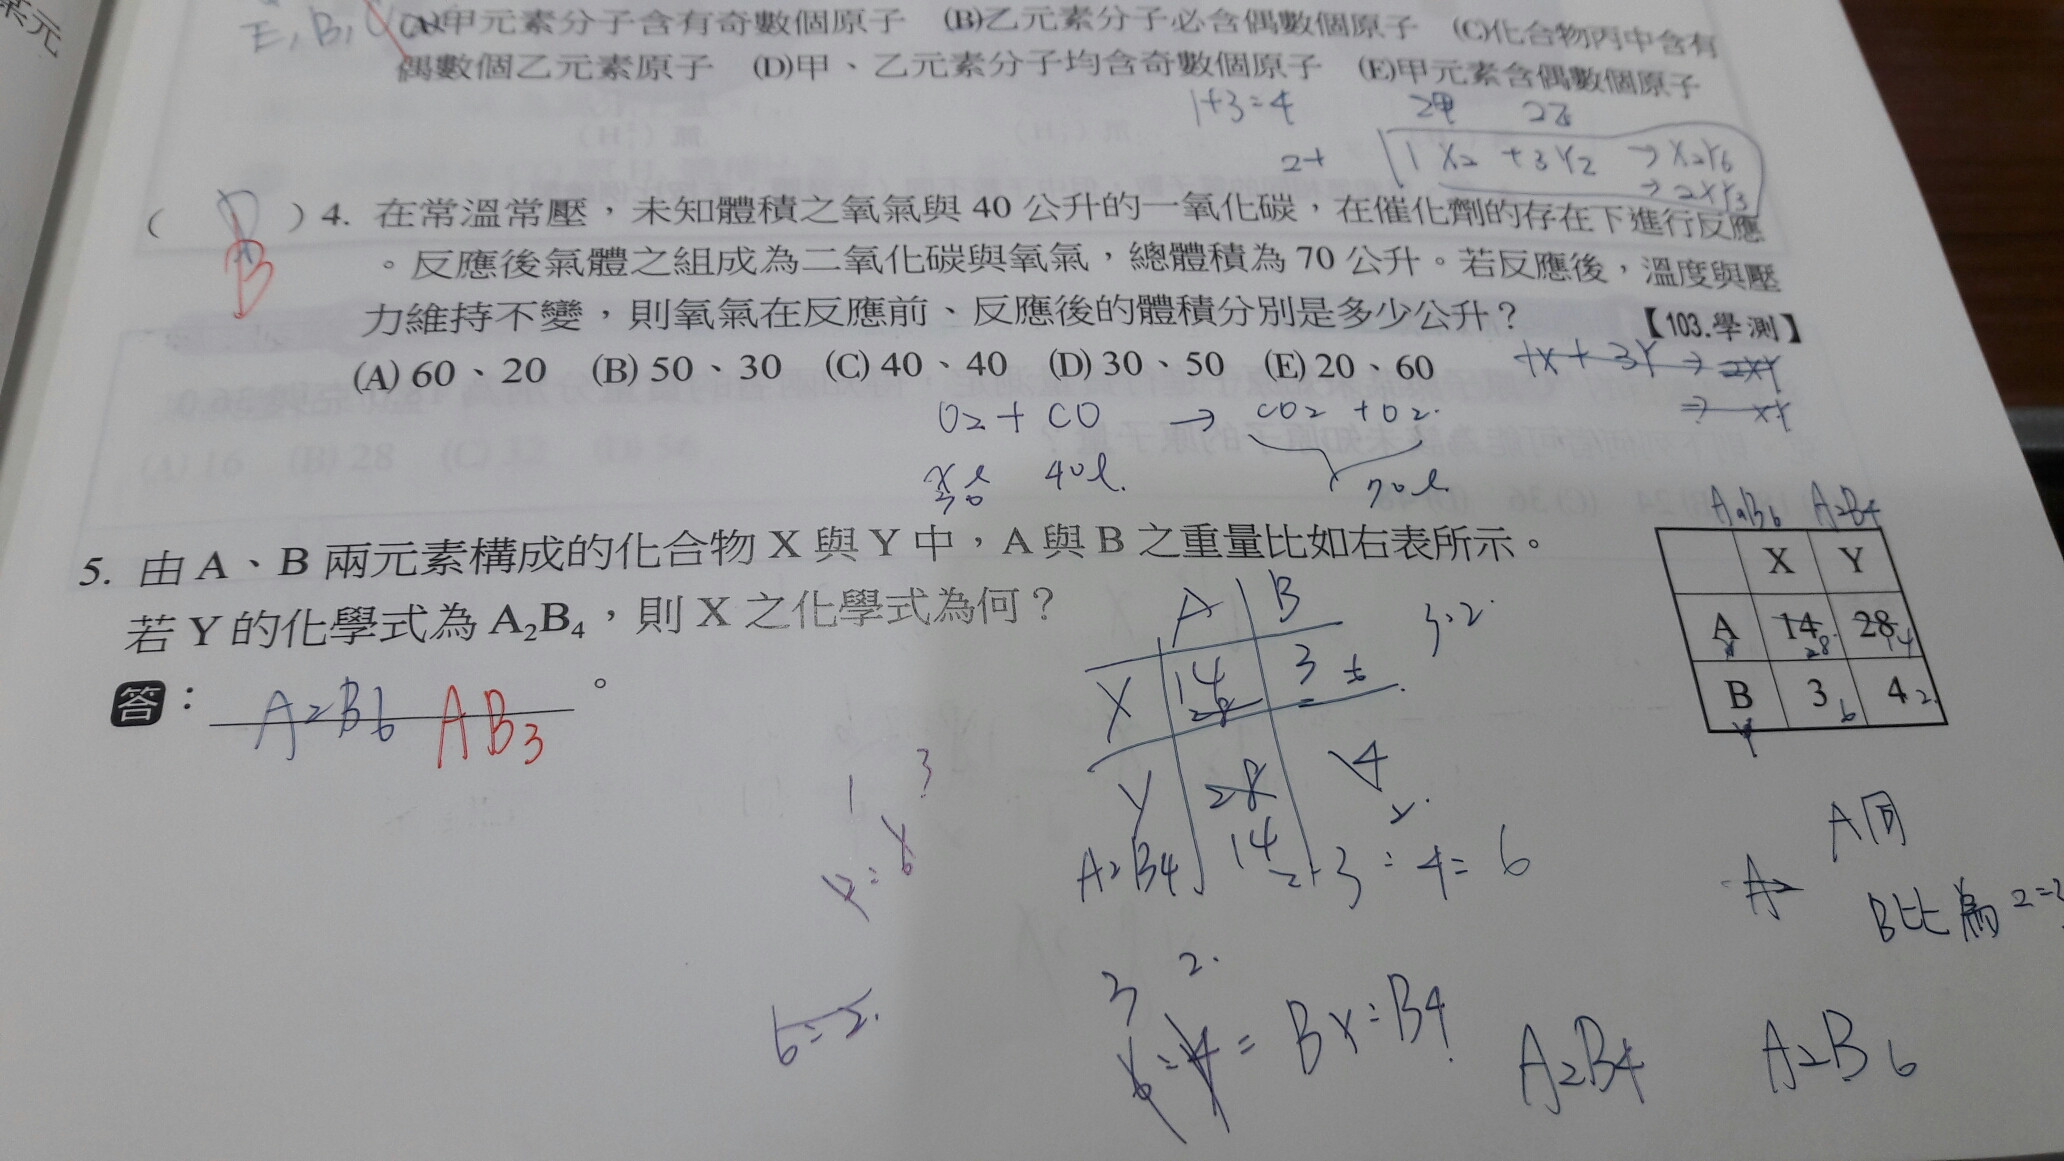 某元
E, B, C
(A)甲元素分子含有奇數個原子 (B)乙元素分子必含偶數個原子 (C)化合物丙中含有
偶數個乙元素原子 (D)甲、乙元素分子均含奇數個原子 (E)甲元素含偶數個原子
1+3=4 2甲 2乙
2+ 1 X2 + 3Y2 → X2Y6
→ 2XY3
( D ) 4. 在常溫常壓,未知體積之氧氣與 40 公升的一氧化碳,在催化劑的存在下進行反應
B 。反應後氣體之組成為二氧化碳與氧氣,總體積為 70 公升。若反應後,溫度與壓
力維持不變,則氧氣在反應前、反應後的體積分別是多少公升? 【103.學測】
(A) 60、20 (B) 50、30 (C) 40、40 (D) 30、50 (E) 20、60
1X + 3Y → 2XY
⇒ XY
O2 + CO → CO2 + O2.
X l 40l. 70l
30
5. 由 A、B 兩元素構成的化合物 X 與 Y 中,A 與 B 之重量比如右表所示。
若 Y 的化學式為 A2B4,則 X 之化學式為何?
答: A2B6 AB3 。
AaBb A2B4
X Y
A 14 28 28 14
B 3 6 4 2
A B
3:2
X 14 28 3 6
Y 28 4
A2B4 14 2
3 : 4 = 6
1 3
A同
B比為 2=3
A2
3 2
6 : 4 = BX : B4
A2B4 A2B6